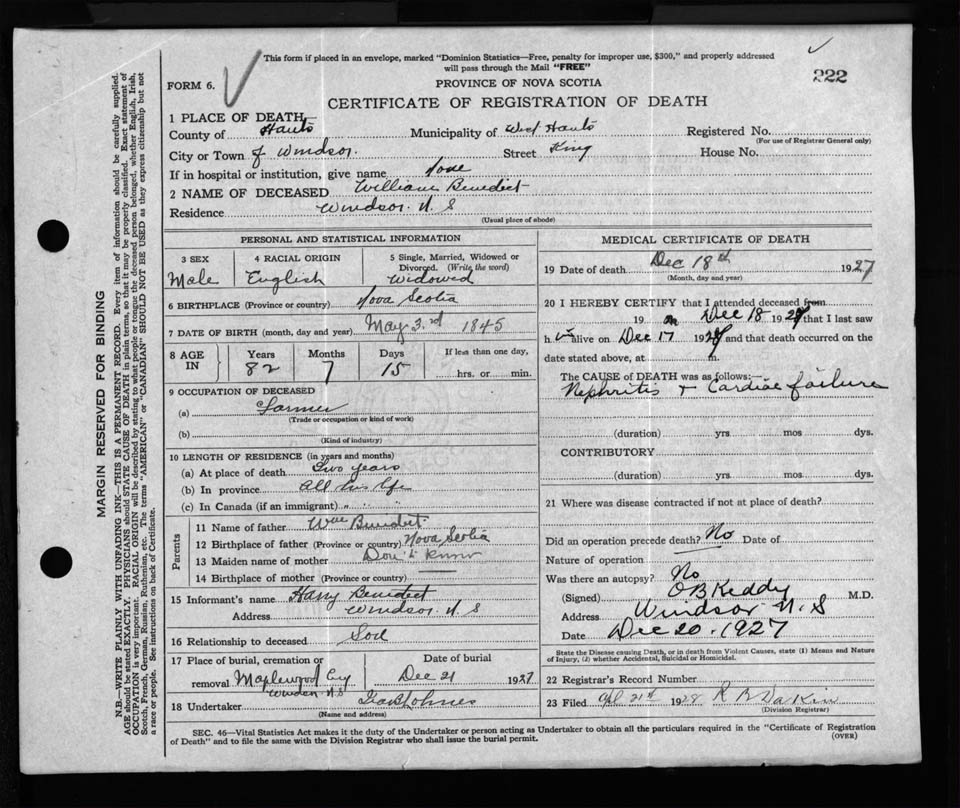 This form if placed in an envelope, marked "Dominion Statistics—Free, penalty for improper use, $300," and properly addressed
will pass through the Mail "FREE"
222
FORM 6.
PROVINCE OF NOVA SCOTIA
CERTIFICATE OF REGISTRATION OF DEATH
1 PLACE OF DEATH—
County of Hants Municipality of West Hants Registered No.
(For use of Registrar General only)
City or Town of Windsor. Street King House No.
If in hospital or institution, give name None
2 NAME OF DECEASED William Benedict
Residence Windsor. N. S
(Usual place of abode)
PERSONAL AND STATISTICAL INFORMATION
3 SEX 4 RACIAL ORIGIN 5 Single, Married, Widowed or
Divorced. (Write the word)
Male English Widowed
6 BIRTHPLACE (Province or country) Nova Scotia
7 DATE OF BIRTH (month, day and year) May 3.rd 1845
8 AGE IN Years Months Days If less than one day,
82 7 15 hrs. or min.
9 OCCUPATION OF DECEASED
(a) Farmer
(Trade or occupation or kind of work)
(b)
(Kind of industry)
10 LENGTH OF RESIDENCE (in years and months)
(a) At place of death Two years
(b) In province all his life
(c) In Canada (if an immigrant)
Parents
11 Name of father Wm Benedict
12 Birthplace of father (Province or country) Nova Scotia
13 Maiden name of mother Don't Know
14 Birthplace of mother (Province or country)
15 Informant's name Harry Benedict
Address Windsor N. S
16 Relationship to deceased Son
17 Place of burial, cremation or Date of burial
removal Maplewood Cy Dec 21 1927
Windsor N.S
18 Undertaker
(Name and address)
MEDICAL CERTIFICATE OF DEATH
19 Date of death Dec 18th 1927
(Month, day and year)
20 I HEREBY CERTIFY that I attended deceased from
19 on Dec 18 1927 that I last saw
h alive on Dec 17 1927 and that death occurred on the
date stated above, at m.
The CAUSE of DEATH was as follows:—
Nephritis + Cardiac failure
(duration) yrs. mos. dys.
CONTRIBUTORY
(duration) yrs. mos. dys.
21 Where was disease contracted if not at place of death?
Did an operation precede death? No Date of
Nature of operation
Was there an autopsy? No
(Signed) O B Keddy M.D.
Address Windsor N. S
Date Dec 20. 1927
State the Disease causing Death, or in death from Violent Causes, state (1) Means and Nature
of Injury, (2) whether Accidental, Suicidal or Homicidal.
22 Registrar's Record Number
23 Filed 21st 1928 R B Dakin
(Division Registrar)
SEC. 46—Vital Statistics Act makes it the duty of the Undertaker or person acting as Undertaker to obtain all the particulars required in the "Certificate of Registration
of Death" and to file the same with the Division Registrar who shall issue the burial permit. (OVER)
MARGIN RESERVED FOR BINDING
N.B.—WRITE PLAINLY WITH UNFADING INK—THIS IS A PERMANENT RECORD. Every item of information should be carefully supplied.
AGE should be stated EXACTLY. PHYSICIANS should STATE CAUSE OF DEATH in plain terms, so that it may be properly classified. Exact statement of
OCCUPATION is very important. RACIAL ORIGIN will be described by stating to what people or tongue the deceased person belonged, whether English, Irish,
Scotch, French, German, Russian, Ruthenian, etc. The terms "AMERICAN" or "CANADIAN" SHOULD NOT BE USED as they express citizenship but not
a race or people. See instructions on back of Certificate.